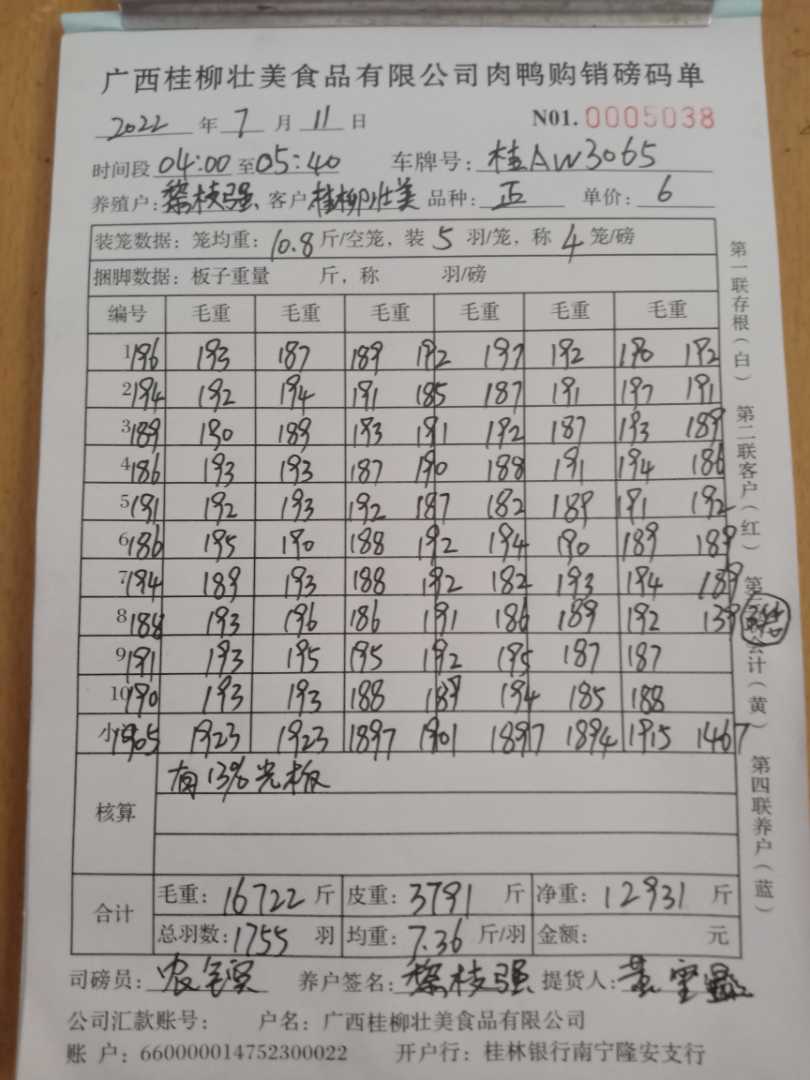 广西桂柳壮美食品有限公司肉鸭购销磅码单
2022 年 7 月 11 日 N01. 0005038
时间段 04:00 至 05:40 车牌号: 桂AW3065
养殖户: 黎枝强 客户 桂柳壮美 品种: 正 单价: 6
装笼数据: 笼均重: 10.8 斤/空笼, 装 5 羽/笼, 称 4 笼/磅
捆脚数据: 板子重量 斤, 称 羽/磅
编号 毛重 毛重 毛重 毛重 毛重 毛重
1 196 193 187 189 192 197 192 190 192
2 194 192 194 191 185 187 191 197 191
3 189 190 189 193 191 192 187 193 189
4 186 193 193 187 190 188 191 194 186
5 191 192 193 192 187 182 189 191 192
6 186 195 190 188 192 194 190 189 189
7 194 189 193 188 192 182 193 194 189
8 188 193 196 186 191 186 189 192 139
9 191 193 195 195 192 195 187 187
10 190 193 193 188 189 194 185 188
小 1905 1923 1923 1897 1901 1897 1894 1915 1467
核算 有13%光板
合计 毛重: 16722 斤 皮重: 3791 斤 净重: 12931 斤
总羽数: 1755 羽 均重: 7.36 斤/羽 金额: 元
司磅员: 农 养户签名: 黎枝强 提货人:
公司汇款账号: 户名: 广西桂柳壮美食品有限公司
账 户: 660000014752300022 开户行: 桂林银行南宁隆安支行
第一联存根(白)
第二联客户(红)
第 会计(黄)
第四联养户(蓝)